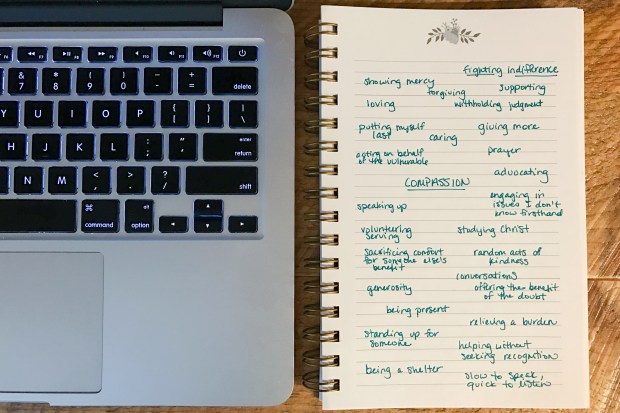 fighting indifference
showing mercy
supporting
forgiving
loving
withholding judgment
putting myself
last
giving more
caring
acting on behalf
of the vulnerable
prayer
advocating
COMPASSION
engaging in
issues I don't
know firsthand
speaking up
volunteering
serving
studying Christ
sacrificing comfort
for someone else's
benefit
random acts of
kindness
conversations
generosity
offering the benefit
of the doubt
being present
relieving a burden
standing up for
someone
helping without
seeking recognition
being a shelter
slow to speak,
quick to listen
& 7
* 8
( 9
) 0
_ -
+ =
delete
Y U I O P { [ } ] | \
H J K L : ; " '
enter
return
N M < , > . ? /
shift
⌘
command
alt
option